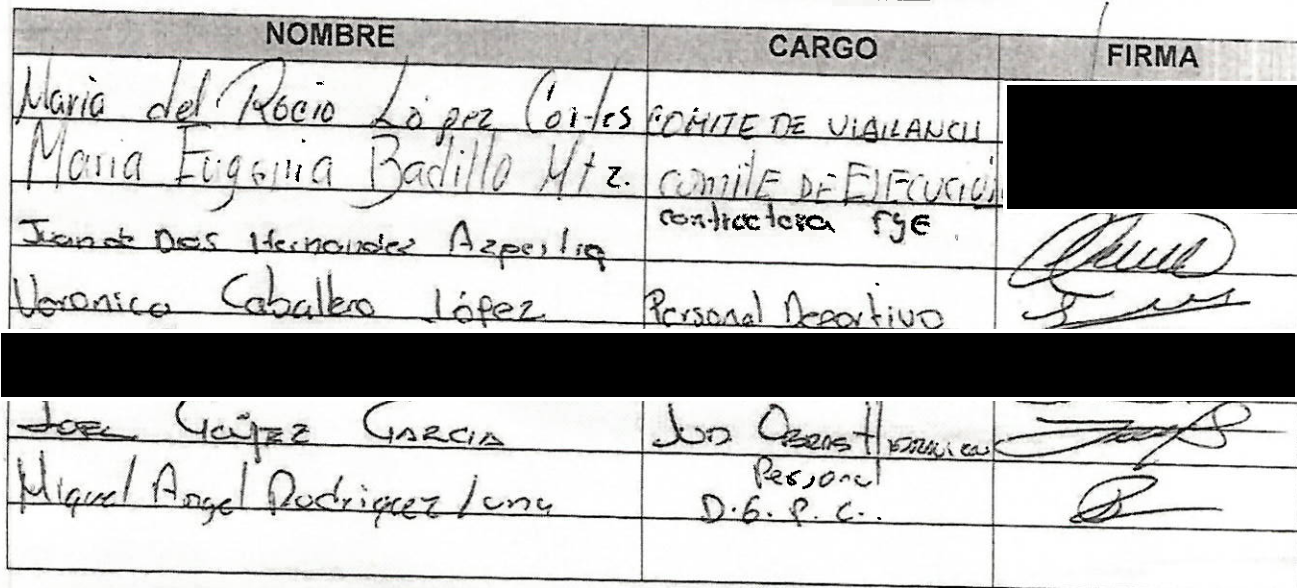 NOMBRE CARGO FIRMA
Maria del Rocio López Cortes COMITE DE VIGILANCIA
Maria Eugenia Badillo Mtz. COMITE DE EJECUCIÓN
Juan de Dios Hernandez Azpeitia contractora FyE
Veronica Caballero López Personal Deportivo
JOEL GARCIA
Miguel Angel Rodriguez Luna Personal
D.G.P.C.